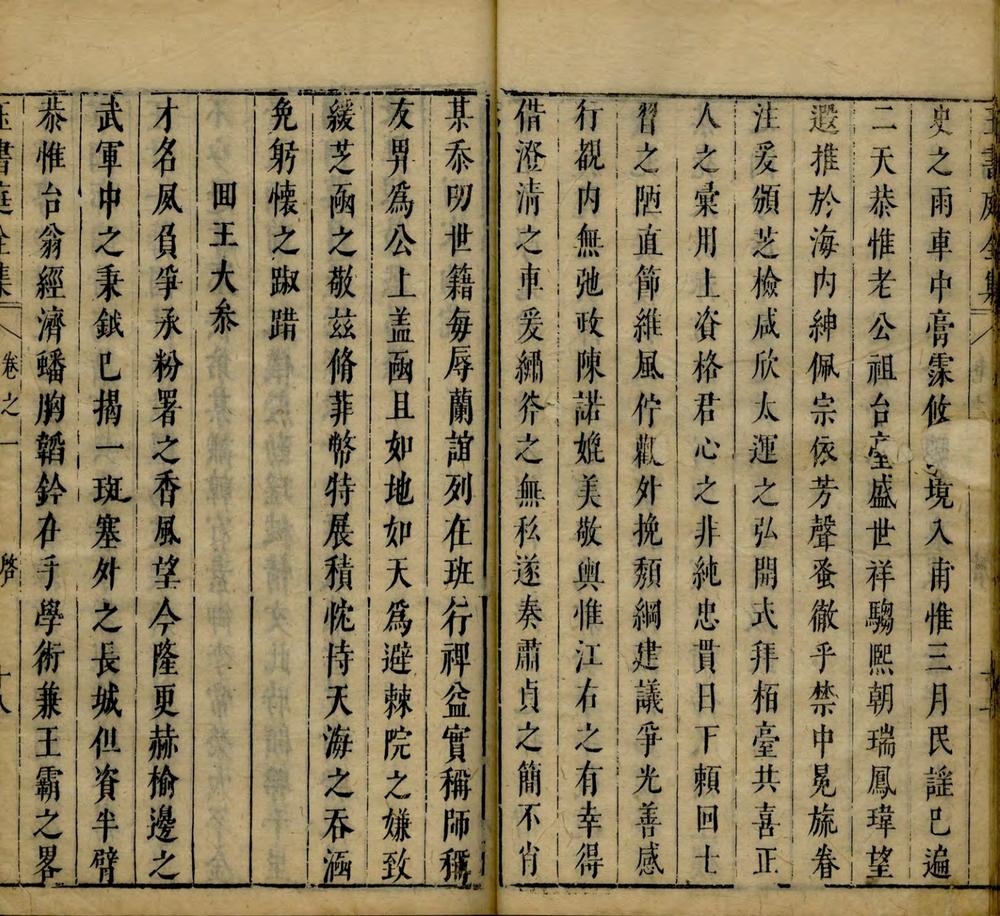 史之雨車中膏霂攸　境入甫惟三月民謠已遍
二天恭惟老公祖台臺盛世祥騶熙朝瑞鳳瑋望
遐推於海内紳佩宗依芳聲蚤徹乎禁中冕旒眷
注爰頒芝檢咸欣太運之弘開式拜栢臺共喜正
人之彙用上資格君心之非純忠貫日下頼回士
習之陋直節維風佇觀外挽頽綱建議爭光善感
行覩内無弛政陳諾媲美敬輿惟江右之有幸得
借澄清之車爰繡斧之無私遂奏肅貞之簡不肖
某忝叨世籍每辱蘭誼列在班行禆益實稱師稱
友畀爲公上盖凾且如地如天爲避棘院之嫌致
緩芝凾之敬玆脩菲幣特展積忱恃天海之吞涵
免躬懐之踧踖
回王大叅
才名夙負爭承粉署之香風望今隆更赫榆邊之
武軍中之秉鉞已揭一斑塞外之長城但資半臂
恭惟台翁經濟蟠胸韜鈐在手學術兼王霸之畧
書庭全集
卷之一
啓
十八